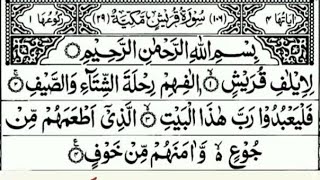 اٰیاتها ٤ (١٠٦) سُوْرَةُ قُرَيْشٍ مَكِّيَّةٌ (٢٩) رکوعها ١
بِسْمِ اللّٰهِ الرَّحْمٰنِ الرَّحِيْمِ
لِاِيْلٰفِ قُرَيْشٍ ۙ﴿۱﴾ اٖلٰفِهِمْ رِحْلَةَ الشِّتَآءِ وَالصَّيْفِ ۚ﴿۲﴾
فَلْيَعْبُدُوْا رَبَّ هٰذَا الْبَيْتِ ۙ﴿۳﴾ الَّذِيْٓ اَطْعَمَهُمْ مِّنْ
جُوْعٍ ەۙ وَّاٰمَنَهُمْ مِّنْ خَوْفٍ ﴿۴﴾